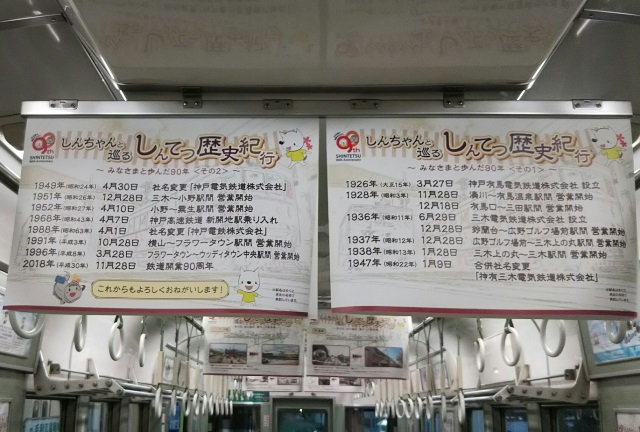 90th
SHINTETSU
しんちゃんと巡る
しんてつ歴史紀行
～みなさまと歩んだ90年 <その2>～
1949年(昭和24年) 4月30日 社名変更「神戸電気鉄道株式会社」
1951年(昭和26年) 12月28日 三木～小野駅間 営業開始
1952年(昭和27年) 4月10日 小野～粟生駅間 営業開始
1968年(昭和43年) 4月7日 神戸高速鉄道 新開地駅乗り入れ
1988年(昭和63年) 4月1日 社名変更「神戸電鉄株式会社」
1991年(平成3年) 10月28日 横山～フラワータウン駅間 営業開始
1996年(平成8年) 3月28日 フラワータウン～ウッディタウン中央駅間 営業開始
2018年(平成30年) 11月28日 鉄道開業90周年
これからもよろしくおねがいします!
90th
SHINTETSU
しんちゃんと巡る
しんてつ歴史紀行
～みなさまと歩んだ90年 <その1>～
1926年(大正15年) 3月27日 神戸有馬電気鉄道株式会社 設立
1928年(昭和3年) 11月28日 湊川～有馬温泉駅間 営業開始
12月18日 有馬口～三田駅間 営業開始
1936年(昭和11年) 6月29日 三木電気鉄道株式会社 設立
12月28日 鈴蘭台～広野ゴルフ場前駅間 営業開始
1937年(昭和12年) 12月28日 広野ゴルフ場前～三木上の丸駅間 営業開始
1938年(昭和13年) 1月28日 三木上の丸～三木駅間 営業開始
1947年(昭和22年) 1月9日 合併社名変更
「神有三木電気鉄道株式会社」